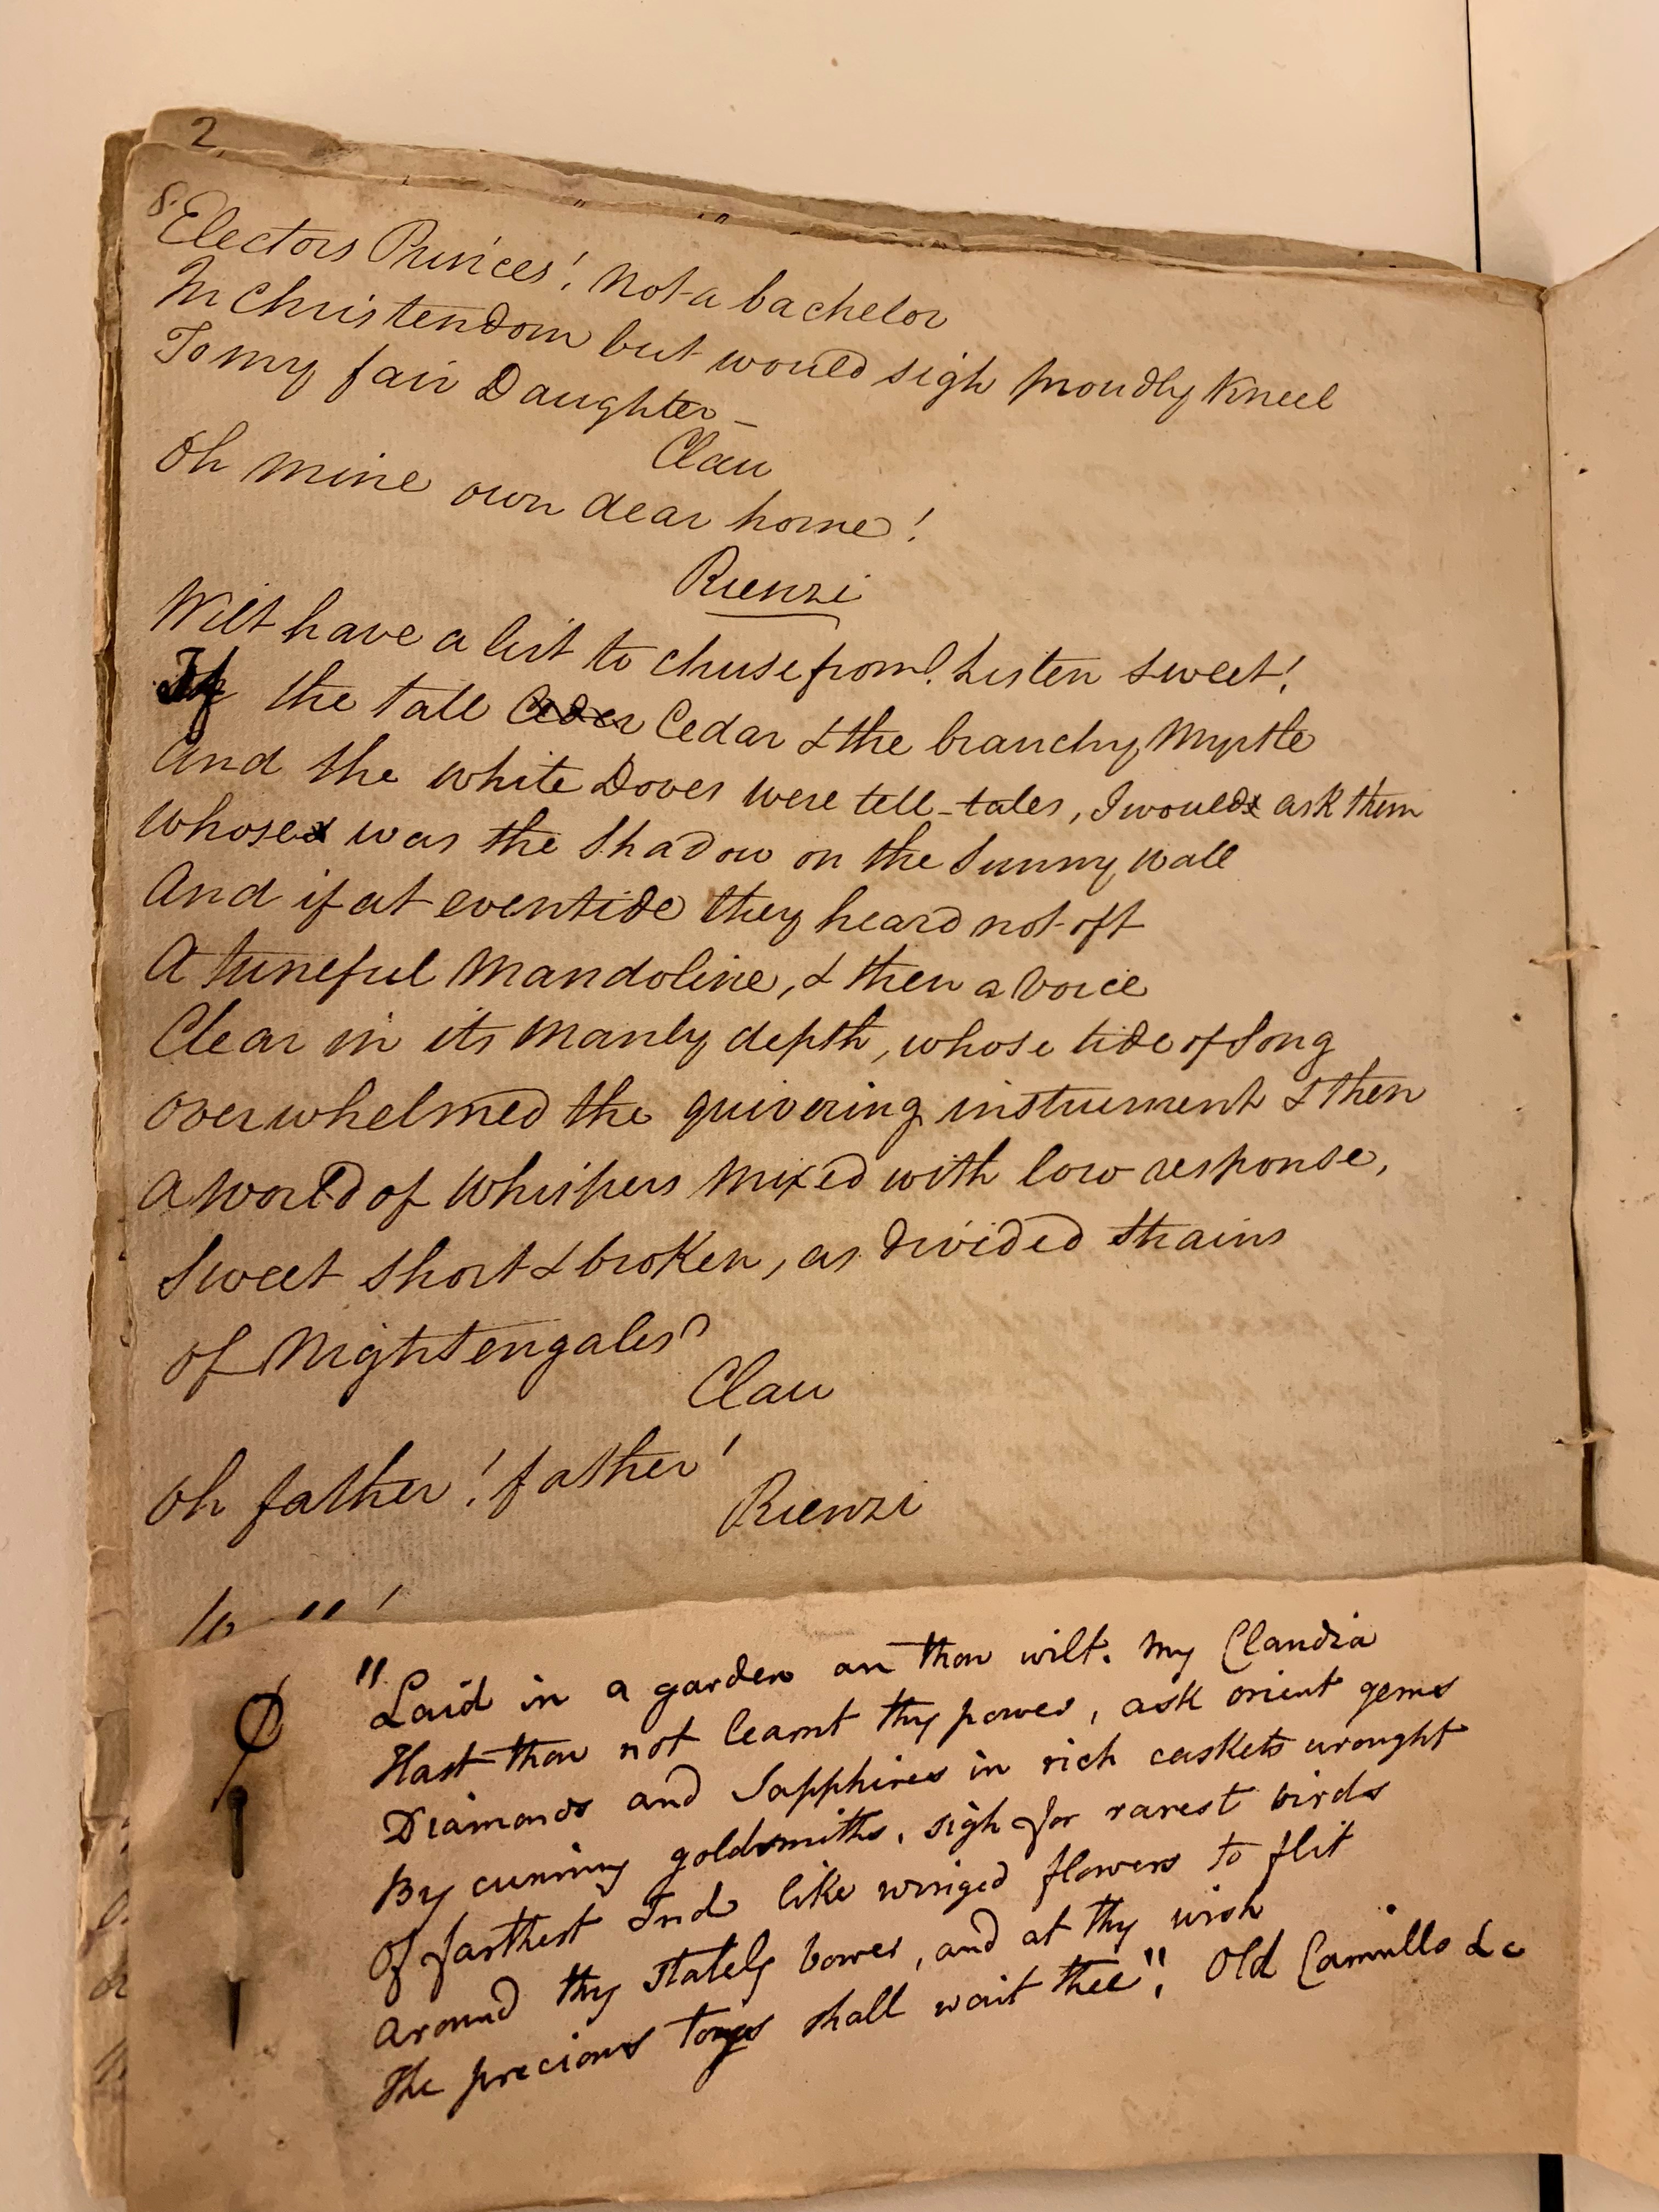 2
8.
Electors Princes! Not a bachelor
In Christendom but would sigh proudly Kneel
To my fair Daughter_
Clau
Oh mine own dear home!
Rienzi
Wilt have a list to chuse from? Listen sweet!
If the tall Ceder Cedar & the branchy Myrtle
And the white Doves were tell-tales, I would ask them
Whose was the Shadow on the Sunny wall
And if at eventide they heard not oft
A tuneful Mandoline, & then a Voice
Clear in its Manly depth, whose tide of Song
Overwhelmed the quivering instrument & then
A World of Whispers Mixed with low response,
Sweet Short & broken, as divided Strains
Of Nightengales?
Clau
Oh father! father!
Rienzi
"Laid in a garden an thou wilt. My Claudia
Hast thou not learnt thy power, ask orient gems
Diamonds and Sapphires in rich caskets wrought
By cunning goldsmiths, sigh for rarest birds
Of farthest Ind like winged flowers to flit
Around thy stately bower, and at thy wish
The precious toys shall wait thee", Old Camillo &c